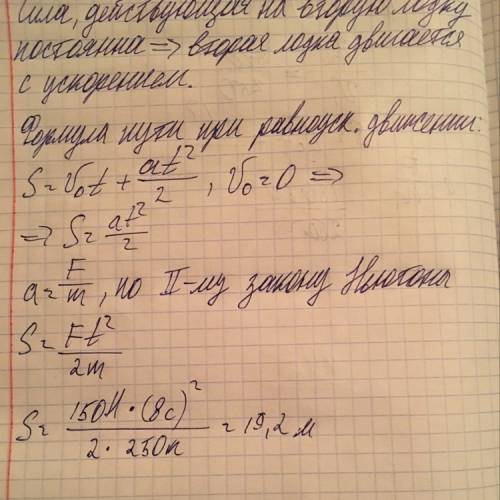 Сила, действующая на вторую лодку
постоянна => вторая лодка двигается
с ускорением.
Формула пути при равноуск. движении:
S = V₀t + at²/2, V₀ = 0 =>
=> S = at²/2
a = F/m, по II-му закону Ньютона
S = Ft²/2m
S = 150Н · (8с)²/2 · 250к = 19,2 м